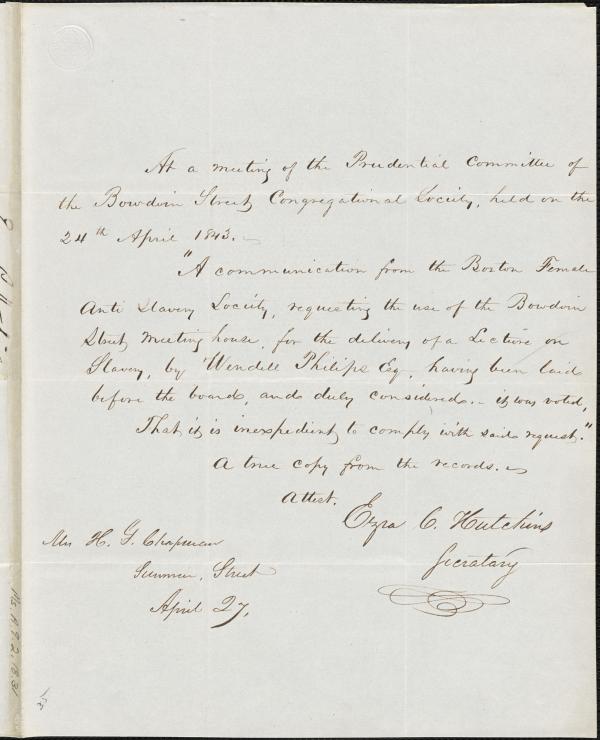 At a meeting of the Prudential Committee of
the Bowdoin Street Congregational Society, held on the
24th April 1843.
"A communication from the Boston Female
Anti Slavery Society, requesting the use of the Bowdoin
Street Meeting house, for the delivery of a Lecture on
Slavery, by Wendell Philips Esq, having been laid
before the board, and duly considered. - it was voted,
That it is inexpedient to comply with said request."
A true copy from the records.
Attest.
Ezra C. Hutchins
Secratary
Mrs H. G. Chapman
Summer, Street
April 27,
Ms. A.9.2.18.31